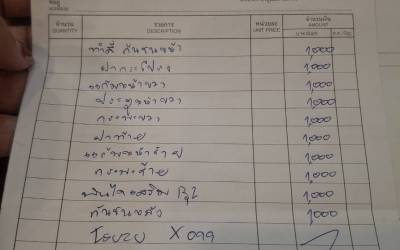 จำนวน รายการ หน่วยละ จำนวนเงิน
QUANTITY DESCRIPTION UNIT PRICE AMOUNT
ทำสี กันชนหน้า 1,000
ฝากระโปรง 1,000
แก้มหน้าขวา 1,000
ประตูหน้าขวา 1,000
กระบะขวา 1,000
ฝาท้าย 1,000
แก้มหน้าซ้าย 1,000
กระบะซ้าย 1,000
1,000
กันชนหลัง 1,000
ISUZU